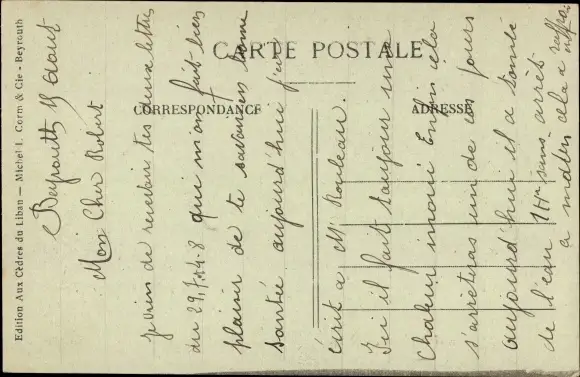 CARTE POSTALE
CORRESPONDANCE
ADRESSE
Edition Aux Cèdres du Liban — Michel I. Corm & Cie - Beyrouth
Beyrouth août
Mon Cher Robert
je viens de recevoir tes deux lettres
du 29, 7 et 4. 8 qui m'on fait bien
plaisir de te savoir en bonne
santé aujourd'hui j'ai
écrit a Mr Rouleau.
Ici il fait toujour une
Chaleur inoui Enfin cela
s'arrêteras un de ces jours
aujourd'hui il a tombé
de l'eau 1 Hre sans arrêt
a midi cela a